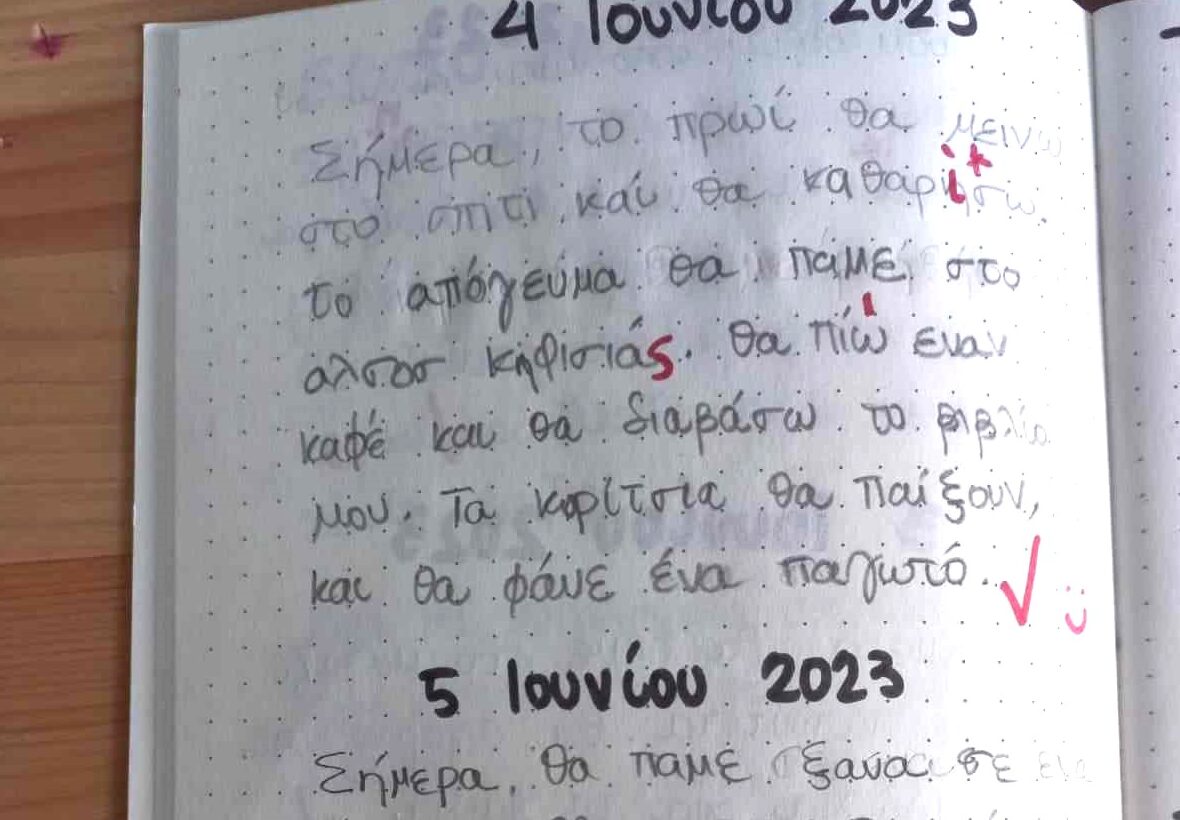 4 Ιουνίου 2023
Σήμερα, το πρωί θα μεινω
στο σπιτι και θα καθαρίσω.
το απόγευμα θα πάμε στο
αλσοσ κηφισιάς. Θα πιώ εναν
καφέ και θα διαβάσω το βιβλίο
μου. Τα κορίτσια θα παίξουν,
και θα φάνε ένα παγωτό.
5 Ιουνίου 2023
Σήμερα, θα παμε ξανα σε ενα